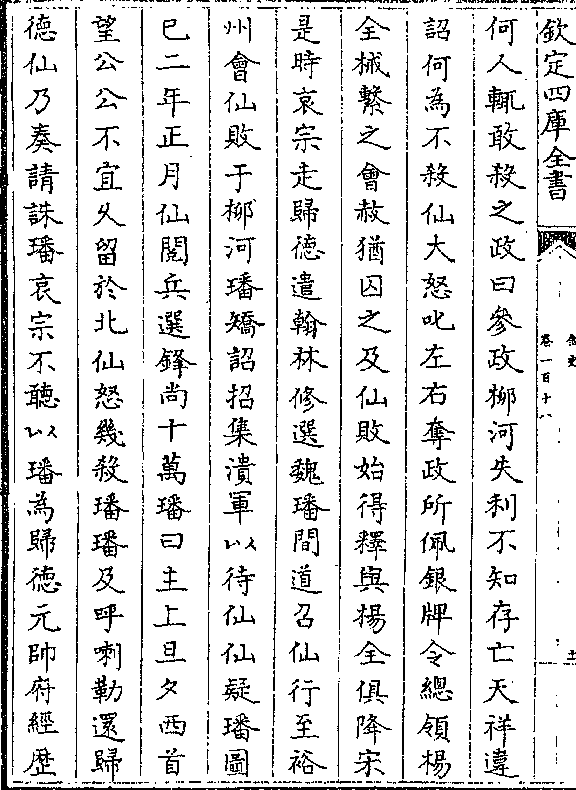 欽定四庫全書
金史
卷一百十八
何人輒敢殺之政曰參政栁河失利不知存亡天祥違
詔何為不殺仙大怒叱左右奪政所佩銀牌令總領楊
全械繫之會赦猶囚之及仙敗始得釋與楊全俱降宋
是時哀宗走歸德遣翰林修選魏璠間道召仙行至裕
州會仙敗于栁河璠矯詔招集潰軍以待仙仙疑璠圖
已二年正月仙閱兵選鋒尚十萬璠曰主上旦夕西首
望公公不宜久留於北仙怒幾殺璠璠及呼喇勒還歸
德仙乃奏請誅璠哀宗不聽以璠為歸德元帥府經歴